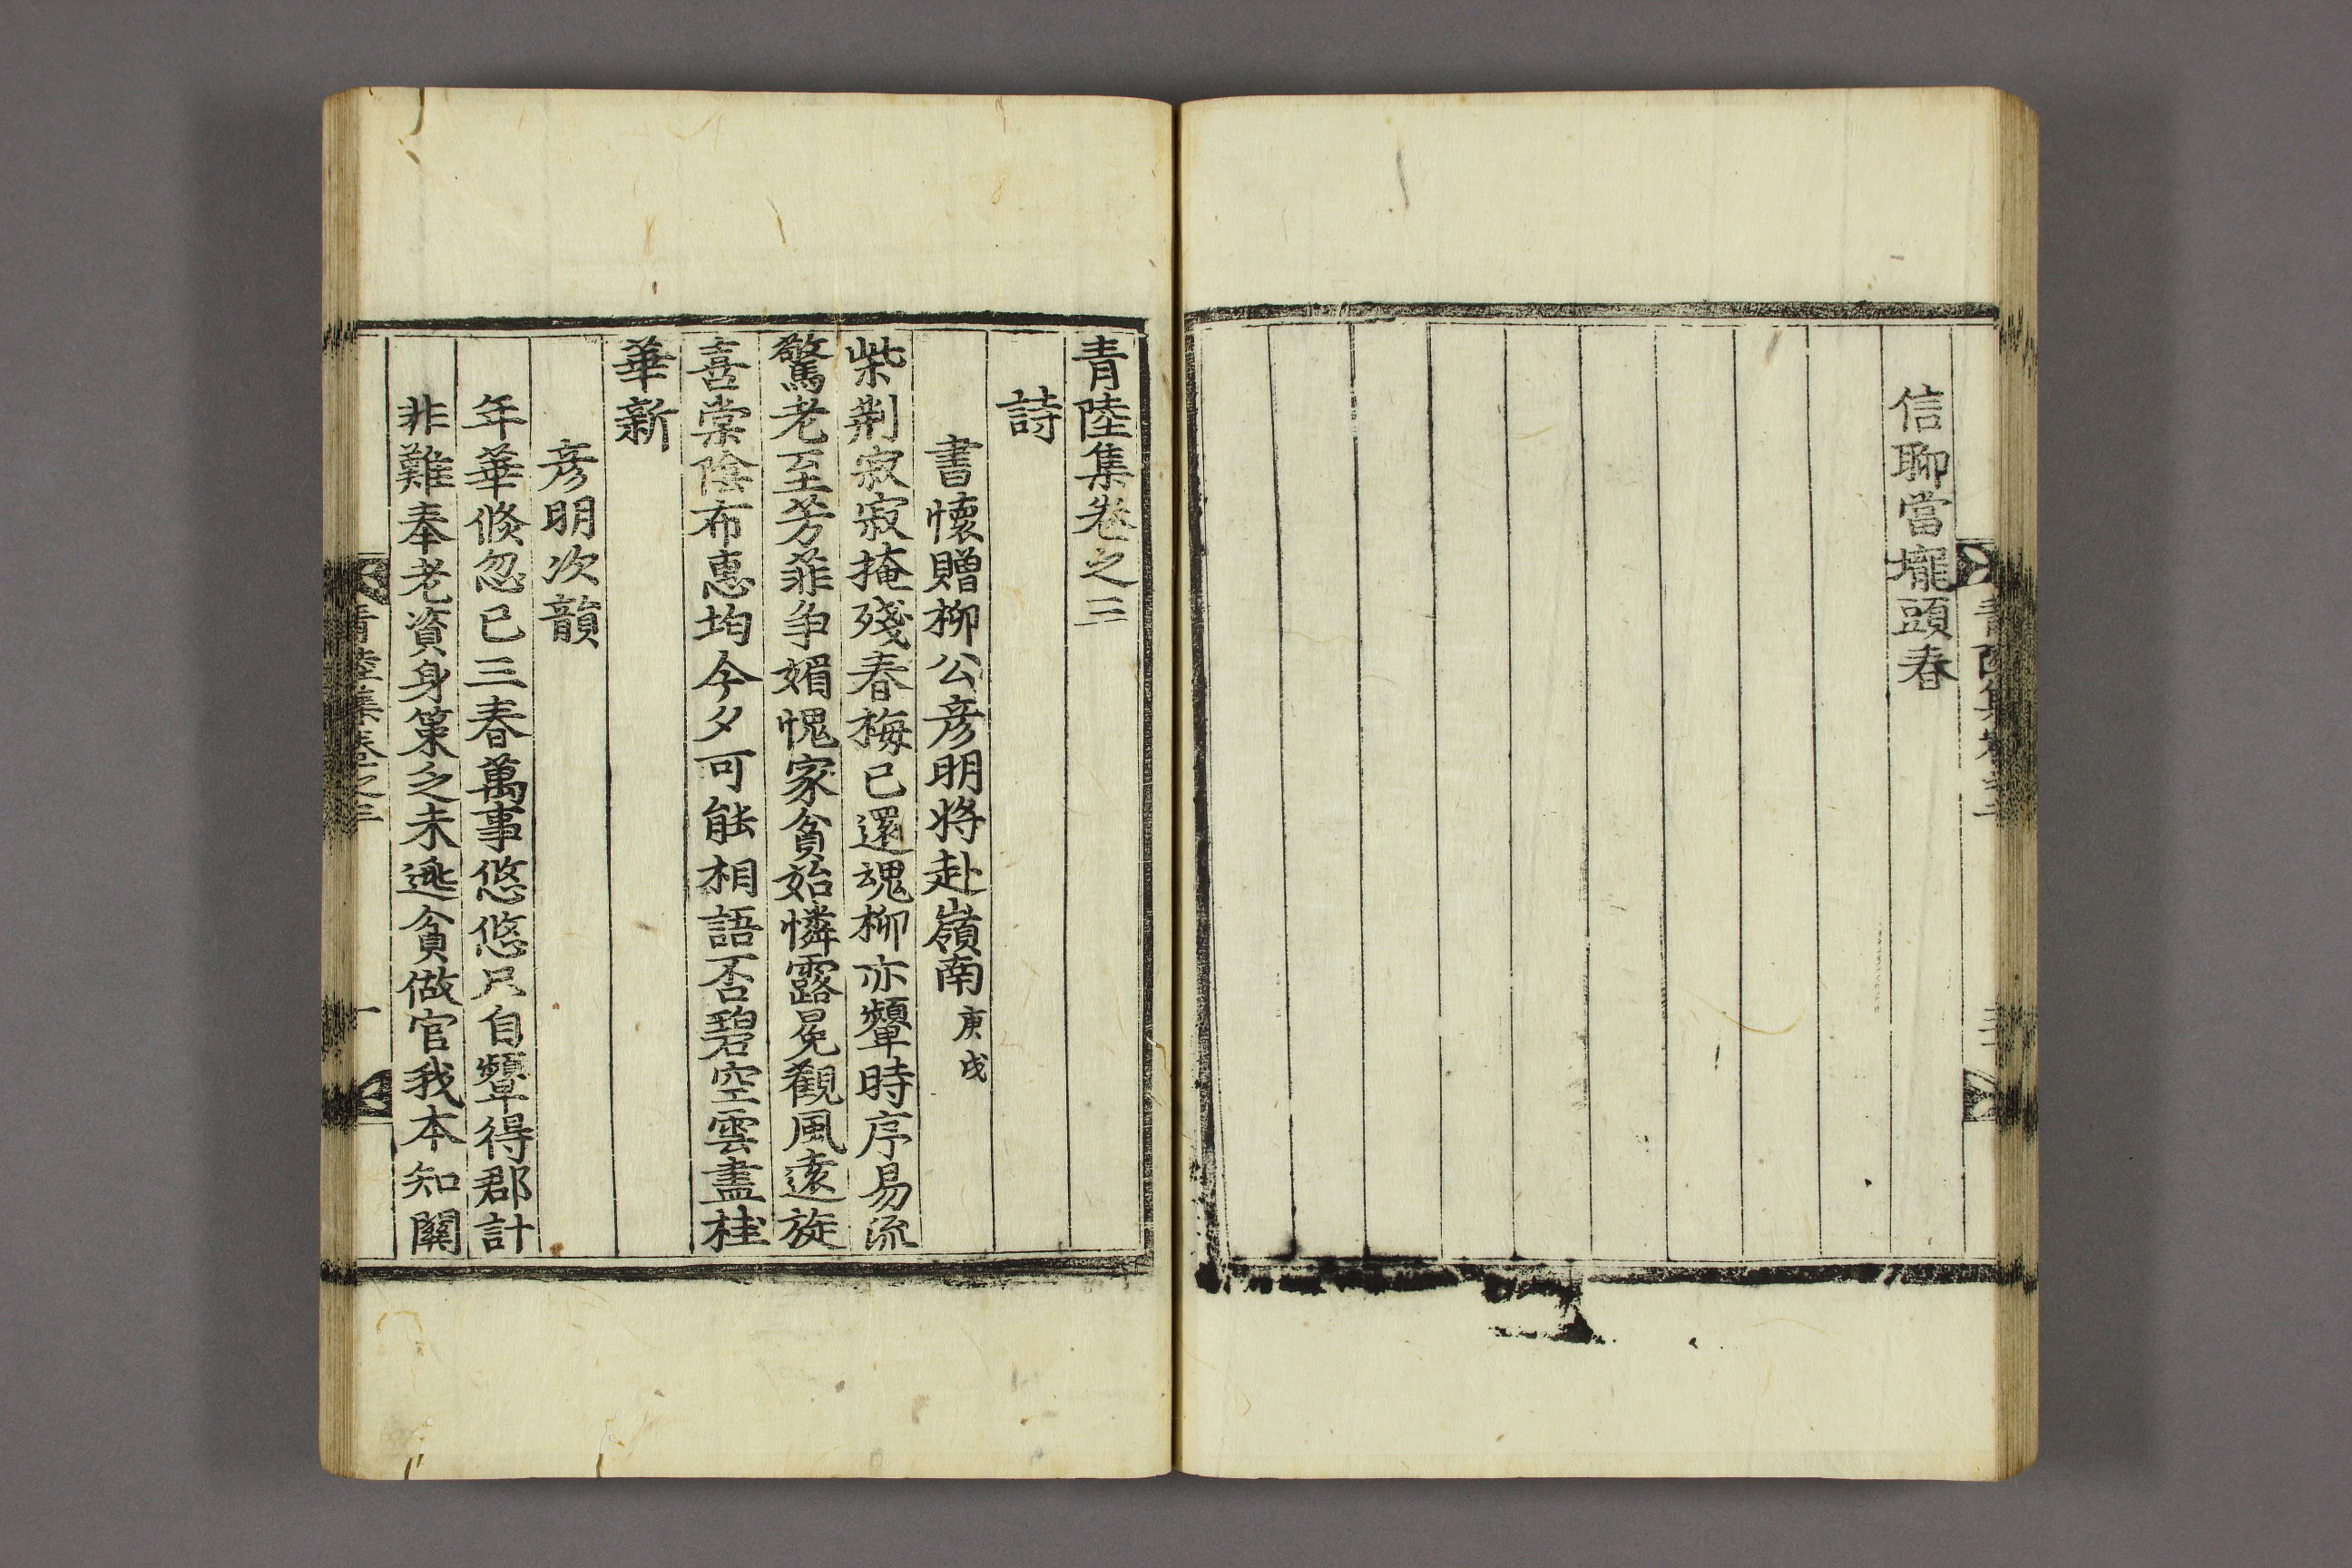 信聊當壠頭春
青陸集卷之三
詩
書懷贈柳公彦明將赴嶺南庚戌
柴荆寂寂掩殘春梅已還魂柳亦顰時序易流
驚老至芳菲爭媚愧家貧始憐露冕觀風遠旋
喜棠陰布惠均今夕可能相語否碧空雲盡桂
華新
彦明次韻
年華倐忽已三春萬事悠悠只自顰得郡計
非難奉老資身策乏未逃貧做官我本知關
青陸集卷之三
一